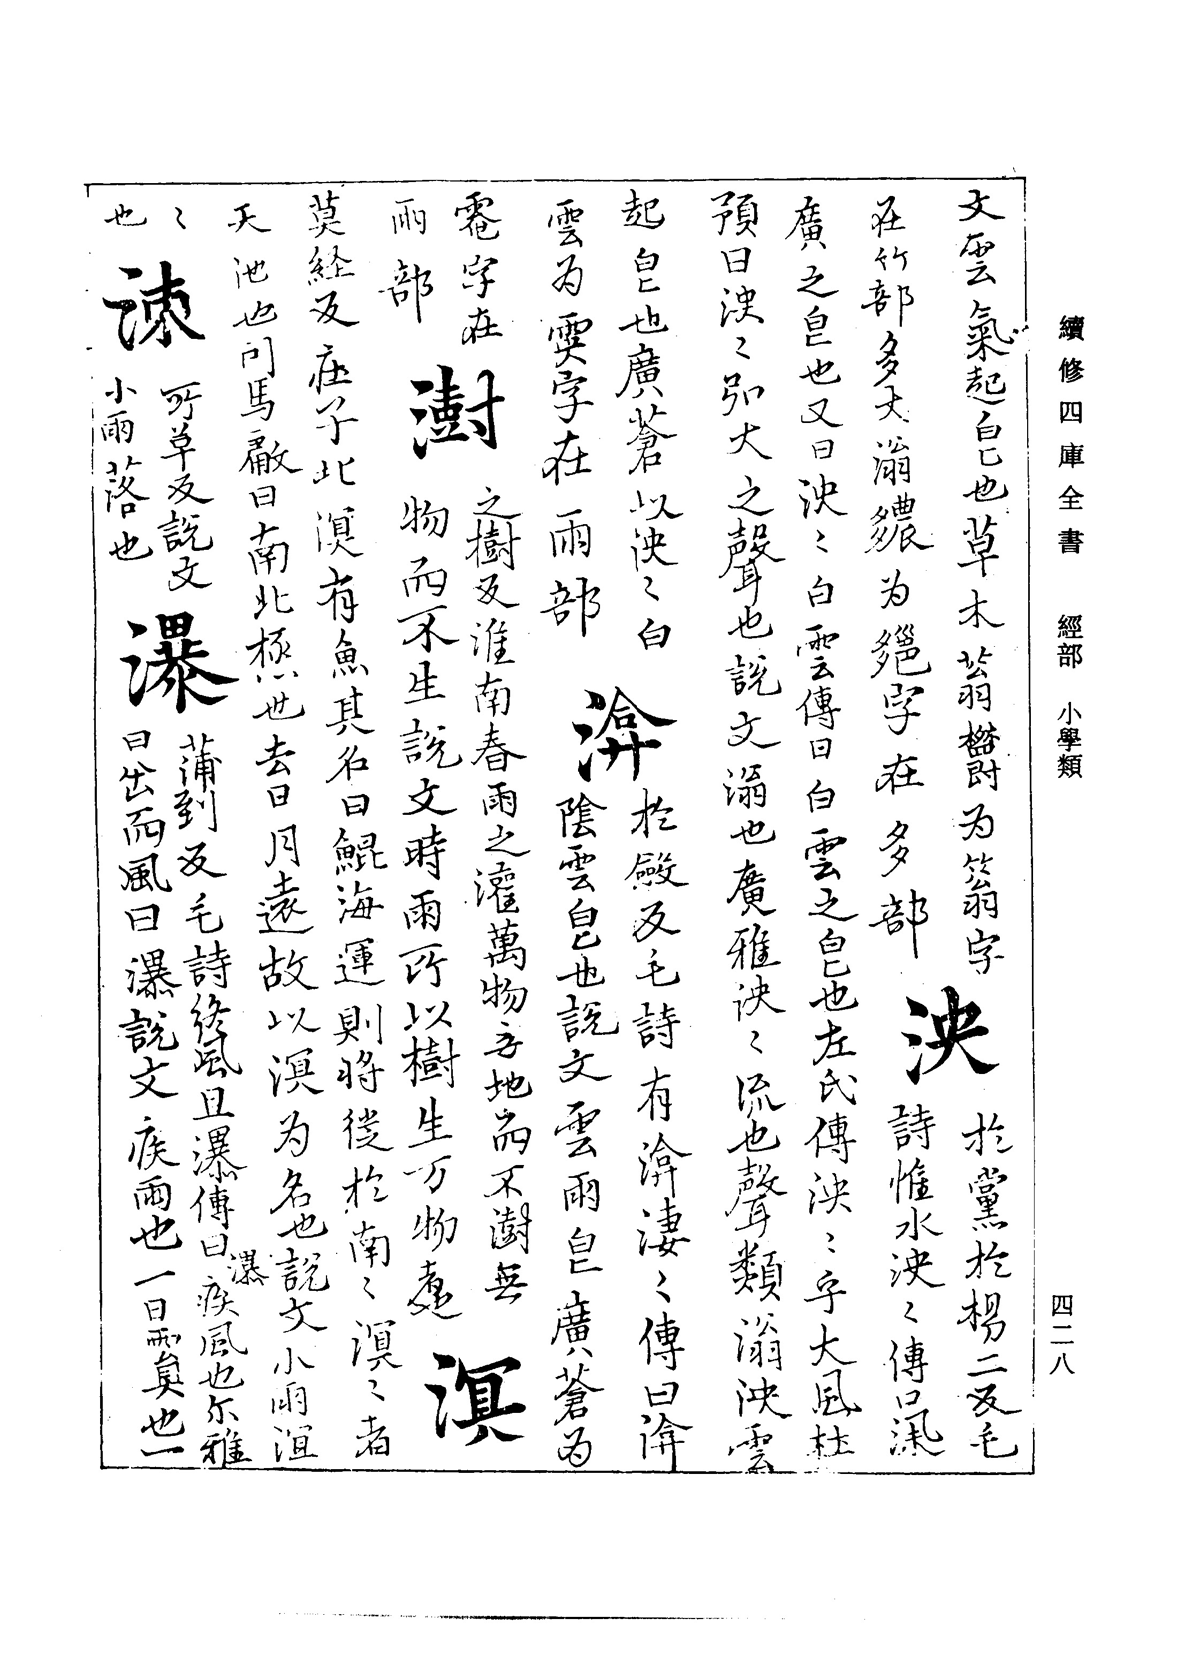 續修四庫全書 經部 小學類
四二八
文雲氣起皃也草木蓊欝为䈵字
在竹部多大滃 为 字在多部
泱
於黨於楊二反毛
詩惟水泱〻傳曰深
廣之皃也又曰泱〻白雲傳曰白雲之皃也左氏傳泱〻乎大風杜
預曰泱〻弘大之聲也說文滃也廣雅泱〻流也聲類滃泱雲
起皃也廣蒼以泱〻白
雲为霙字在雨部
渰
於斂反毛詩有渰淒〻傳曰渰
陰雲皃也說文雲雨皃廣蒼为
字在
雨部
澍
之樹反淮南春雨之灌萬物無地而不澍無
物而不生說文時雨所以樹生万物
溟
莫経反莊子北溟有魚其名曰鯤海運則將從於南〻溟〻者
天池也司馬彪曰南北極也去日月遠故以溟为名也說文小雨溟
〻
也
涑
所革反說文
小雨落也
瀑
蒲到反毛詩終風且瀑傳曰瀑疾風也尔雅
日出而風曰瀑說文疾雨也一曰霣也一